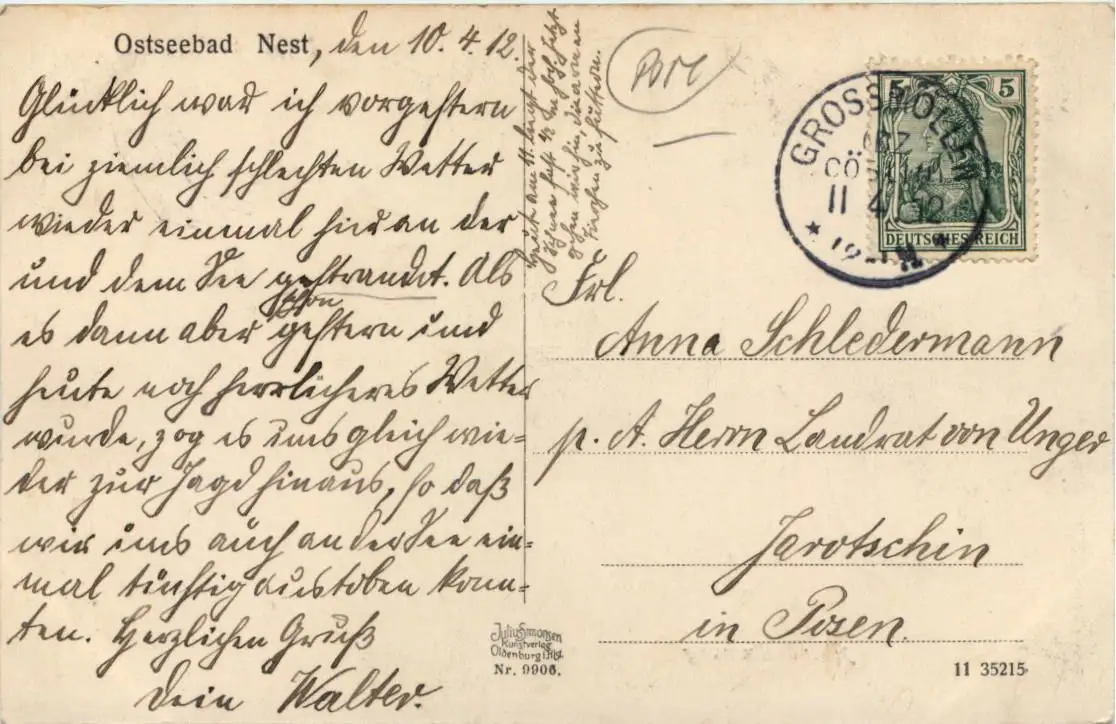 Ostseebad Nest, den 10.4.12.
Glücklich war ich vorgestern
bei ziemlich schlechten Wetter
wieder einmal hier an der
und dem See gestrandet. Als
es dann aber schon gestern und
heute noch herrlicheres Wetter
wurde, zog es uns gleich wie-
der zur Jagd hinaus, so daß
wir uns auch an der See ein-
mal tüchtig austoben konn-
ten. Herzlichen Gruß
Dein Walter.
Heut am 11. liegt der
Schnee fast ½ m hoch, jetzt
gehen wir hin, die armen
zu füttern.
GROSS MÖLLEN
CÖSLIN
11 4 12
5 5
DEUTSCHES REICH
Frl.
Anna Schledermann
p. A. Herrn Landrat von Unger
Jarotschin
in Posen.
Julius Simonsen
Kunstverlag
Oldenburg i. Hlst.
Nr. 9906.
11 35215